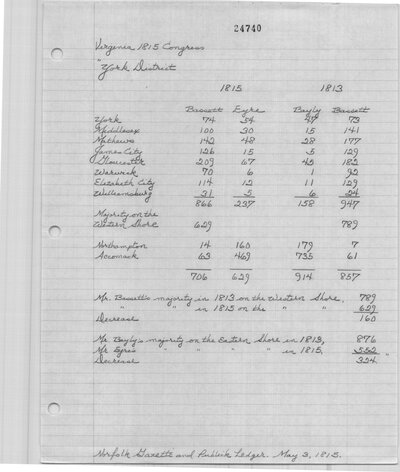 24740
Virginia 1815 Congress
"York District
1815 1813
Bassett Eyre Bayly Bassett
York 74 54 47 73
Middlesex 100 30 15 141
Mathews 142 48 28 177
James City 126 15 5 129
Gloucester 209 67 45 182
Warwick 70 6 1 92
Elizabeth City 114 12 11 129
Williamsburg 31 5 6 24
866 237 158 947
Majority on the
Western Shore 629 789
Northampton 14 160 179 7
Accomack 63 469 735 61
706 629 914 857
Mr. Bassett's majority in 1813 on the Western Shore, 789
" " in 1815 on the " " 629
Decrease 160
Mr Bayly's majority on the Eastern Shore in 1813, 876
Mr Eyre's " " " " in 1815, 552
Decrease 324 "
Norfolk Gazette and Publick Ledger. May 3, 1815.